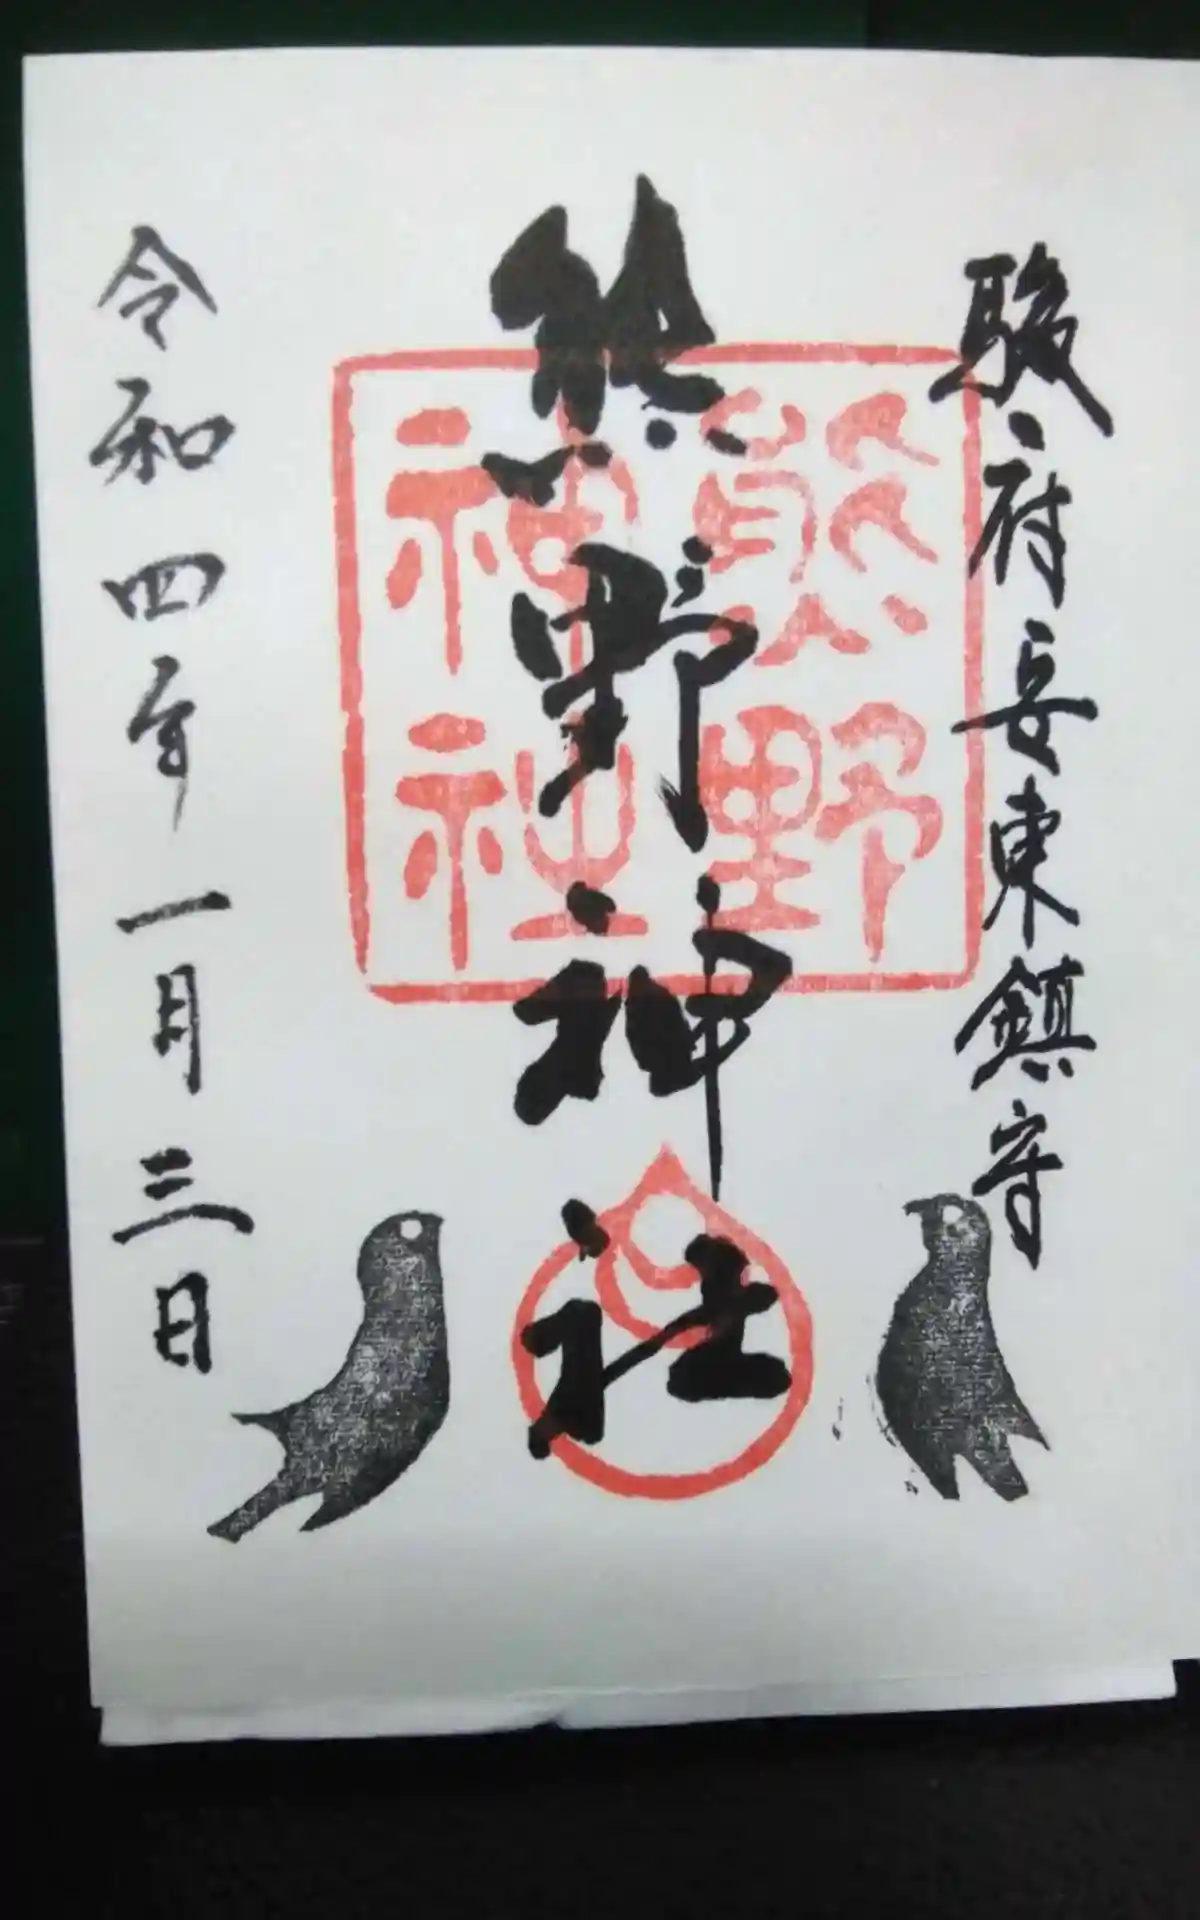 駿府安東鎮守
熊野神社
熊野
神社
令和四年一月三日